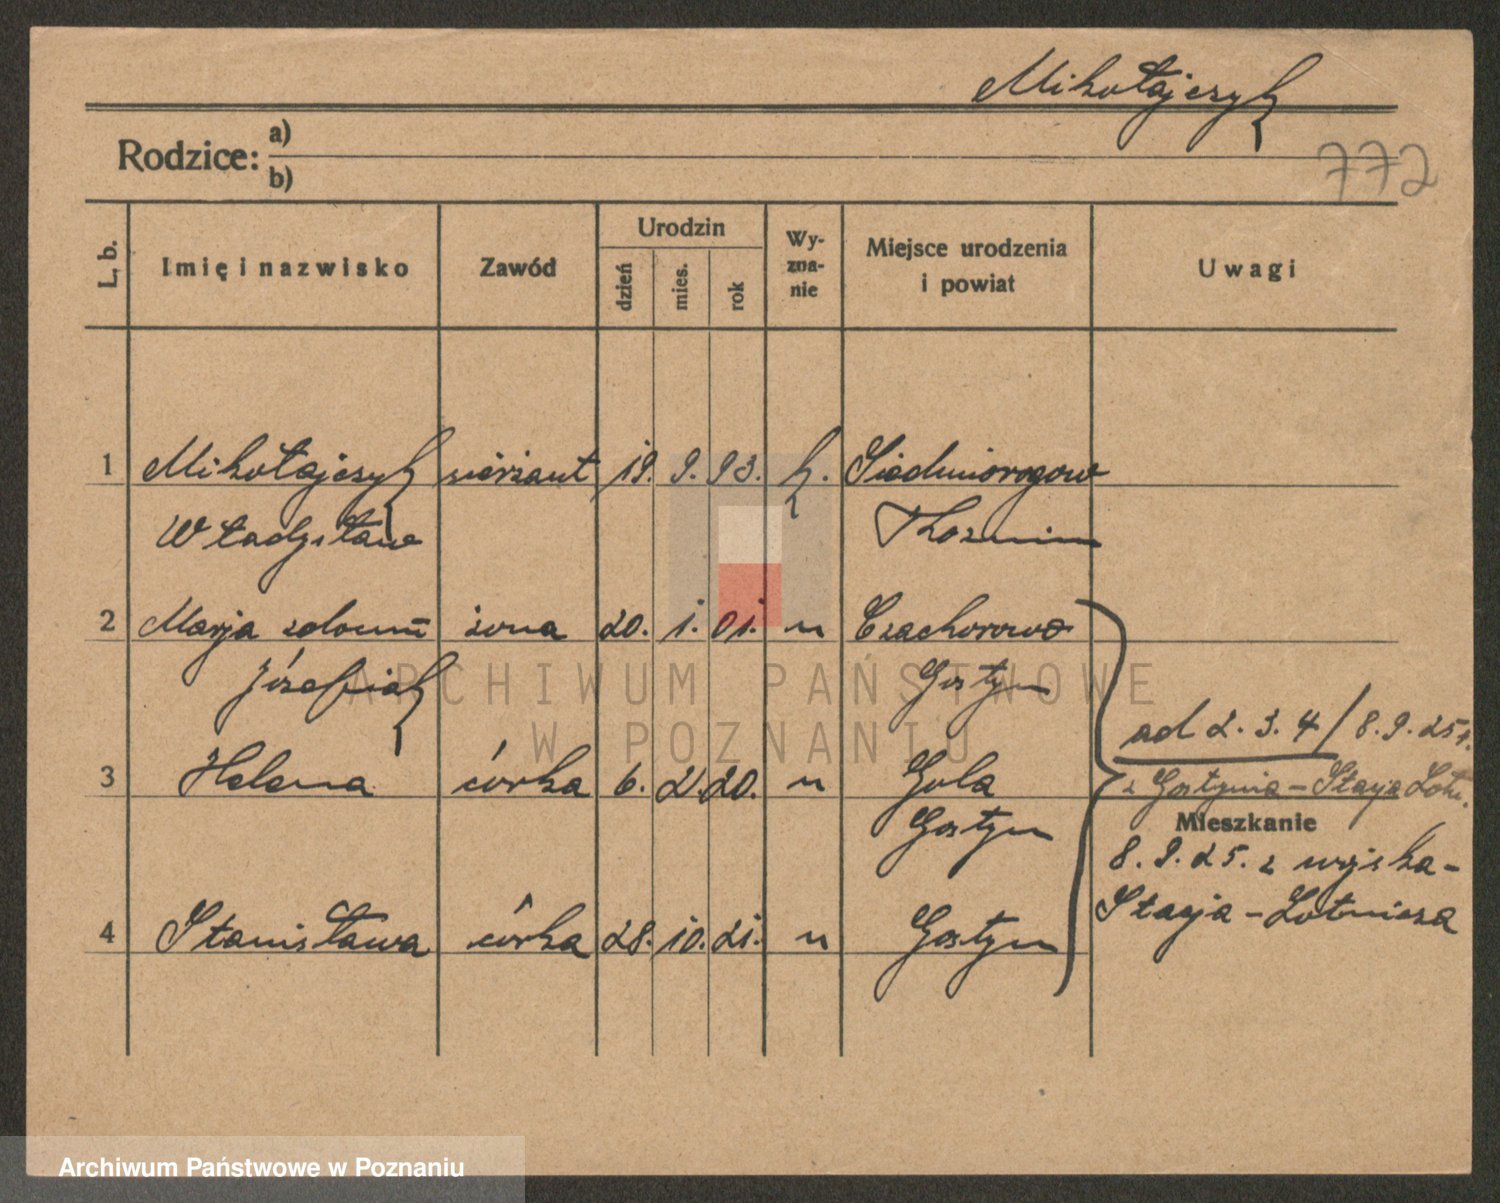 Mikołajczyk
Rodzice: a)
b)
772
L. b.
Imię i nazwisko
Zawód
Urodzin
dzień
mies.
rok
Wy-
zna-
nie
Miejsce urodzenia
i powiat
Uwagi
1 Mikołajczyk sierżant 19. 9. 93. k. Siedmiorogow
Władysław
2 Marja żona 20. 1. 01. " Czachorowo
Józefiak Gostyn
ad 2. 3. 4/ 8.9.25r.
3 Helena córka 6. 2. 20. " Gola
z Gostynia - Stacja Lotn.
Gostyn
Mieszkanie
8.9.25. z wojska -
Stacja - Lotnicza
4 Stanisława córka 28. 10. 21. " Gostyn
ARCHIWUM PAŃSTWOWE
W POZNANIU
Archiwum Państwowe w Poznaniu